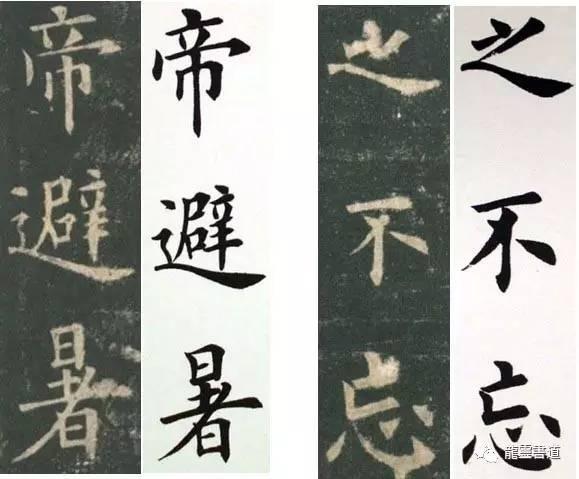 帝避暑
帝避暑
之不忘
之不忘
龍霊書道